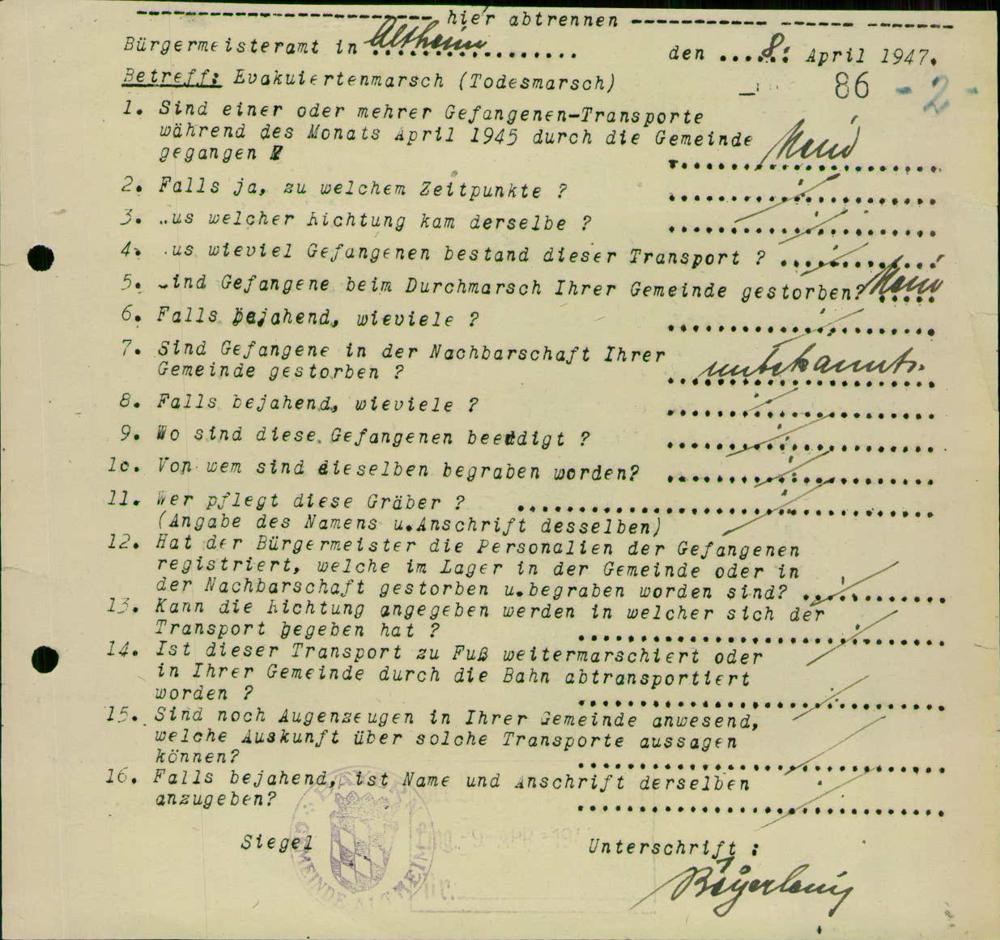 hier abtrennen
Bürgermeisteramt in Altheim
den ....8. April 1947.
Betreff: Evakuiertenmarsch (Todesmarsch)
86 - 2 -
1. Sind einer oder mehrer Gefangenen-Transporte
während des Monats April 1945 durch die Gemeinde
gegangen ? Nein
2. Falls ja, zu welchem Zeitpunkte ?
3. .us welcher Richtung kam derselbe ?
4. .us wieviel Gefangenen bestand dieser Transport ?
5. .ind Gefangene beim Durchmarsch Ihrer Gemeinde gestorben? Nein
6. Falls bejahend, wieviele ?
7. Sind Gefangene in der Nachbarschaft Ihrer
Gemeinde gestorben ? unbekannt.
8. Falls bejahend, wieviele ?
9. Wo sind diese Gefangenen beerdigt ?
1o. Von wem sind dieselben begraben worden?
11. Wer pflegt diese Gräber ?
(Angabe des Namens u.Anschrift desselben)
12. Hat der Bürgermeister die Personalien der Gefangenen
registriert, welche im Lager in der Gemeinde oder in
der Nachbarschaft gestorben u.begraben worden sind?
13. Kann die Richtung angegeben werden in welcher sich der
Transport gegeben hat ?
14. Ist dieser Transport zu Fuß weitermarschiert oder
in Ihrer Gemeinde durch die Bahn abtransportiert
worden ?
15. Sind noch Augenzeugen in Ihrer Gemeinde anwesend,
welche Auskunft über solche Transporte aussagen
können?
16. Falls bejahend, ist Name und Anschrift derselben
anzugeben?
BAYERN
GEMEINDE ALTHEIM
Siegel
Eing. -9. APR. 194
Nr.
Unterschrift :